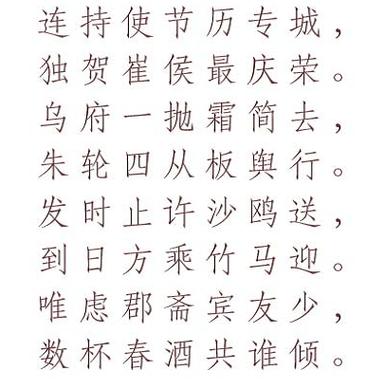 连持使节历专城，
独贺崔侯最庆荣。
乌府一抛霜简去，
朱轮四从板舆行。
发时止许沙鸥送，
到日方乘竹马迎。
唯虑郡斋宾友少，
数杯春酒共谁倾。